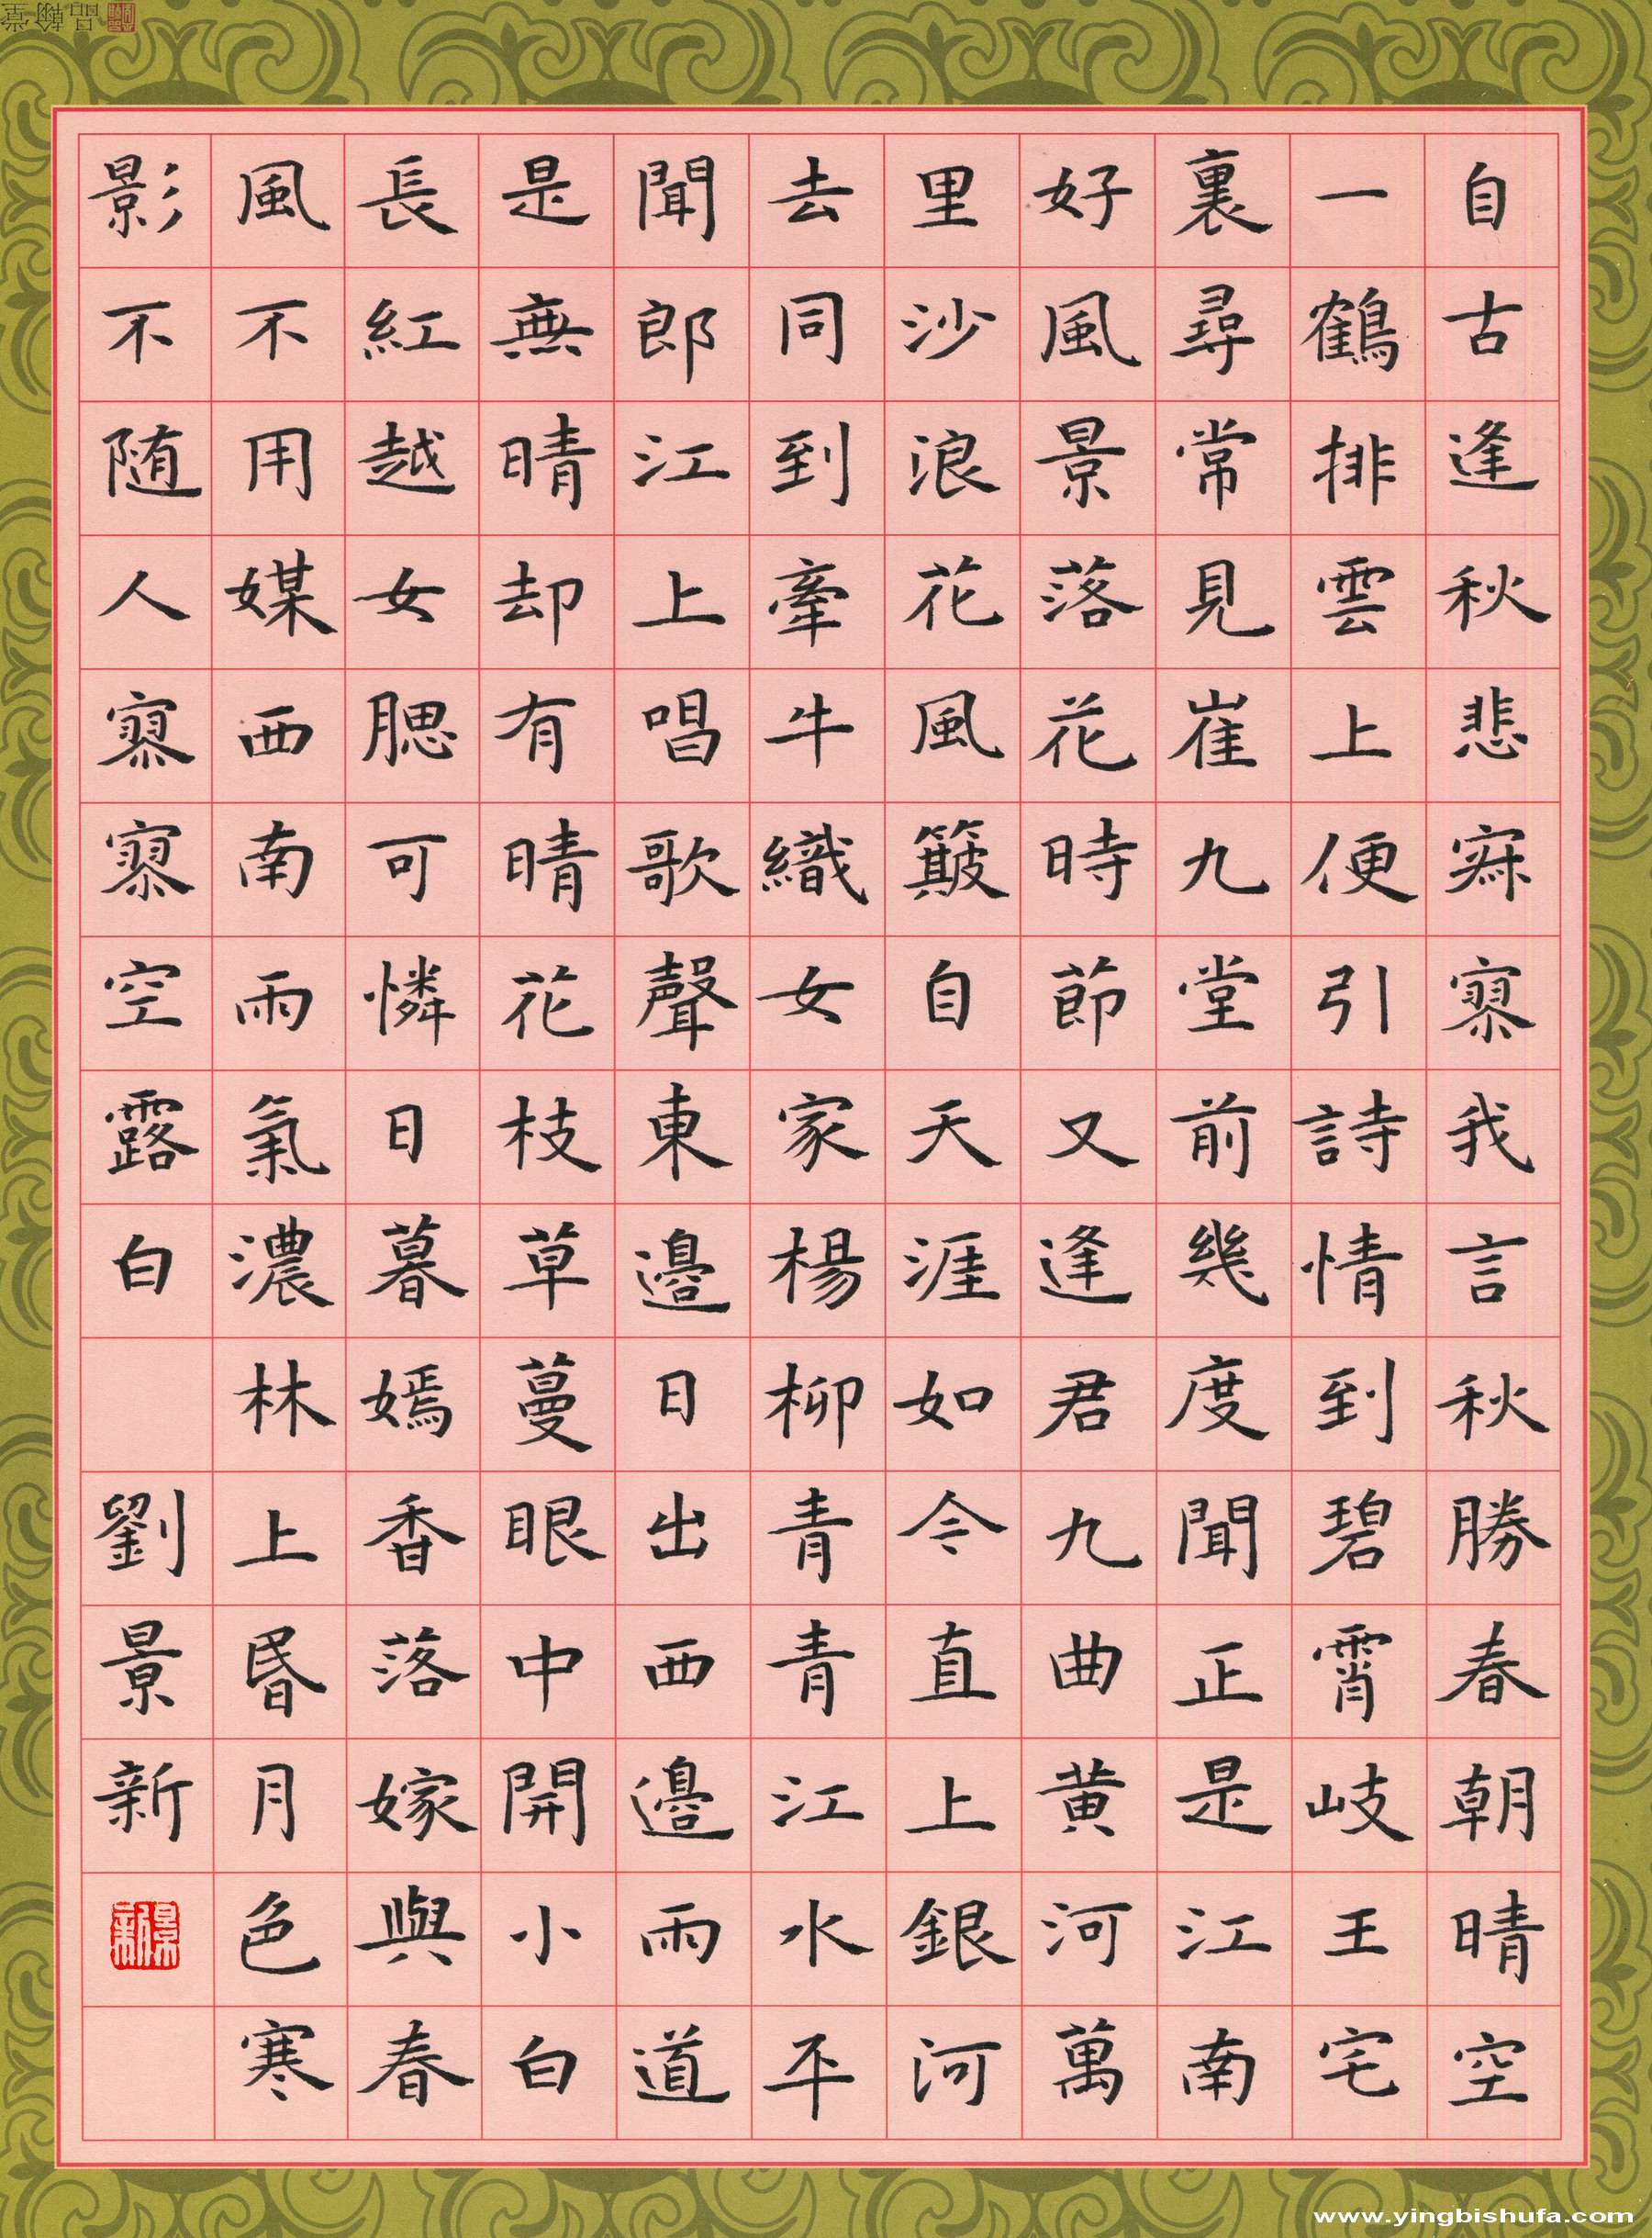 自古逢秋悲寂寥我言秋勝春朝晴空
一鶴排雲上便引詩情到碧霄岐王宅
裏尋常見崔九堂前幾度聞正是江南
好風景落花時節又逢君九曲黄河萬
里沙浪花風簸自天涯如今直上銀河
去同到牽牛織女家楊柳青青江水平
聞郎江上唱歌聲東邊日出西邊雨道
是無晴却有晴花枝草蔓眼中開小白
長紅越女腮可憐日暮嫣香落嫁與春
風不用媒西南雨氣濃林上昏月色寒
影不随人寥寥空露白 劉景新
景新
品翰堂
www.yingbishufa.com